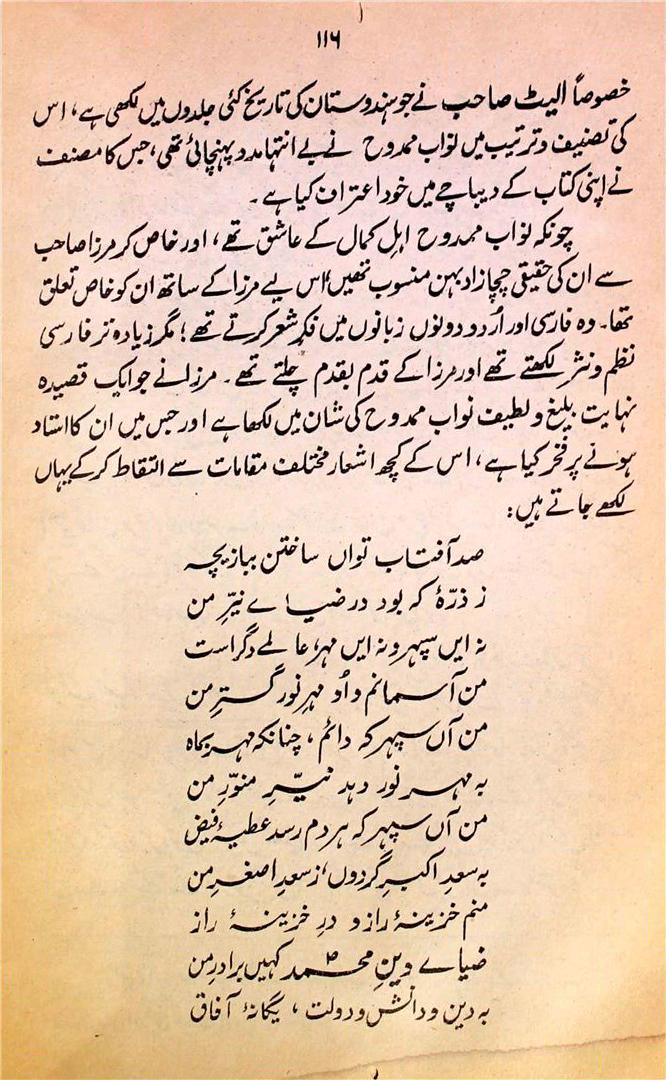 ۱۱۶
خصوصاً الیٹ صاحب نے جو ہندوستان کی تاریخ کئی جلدوں میں لکھی ہے، اس
کی تصنیف و ترتیب میں نواب ممدوح نے بے انتہا مدد پہنچائی تھی، جس کا مصنف
نے اپنی کتاب کے دیباچے میں خود اعتراف کیا ہے۔
چونکہ نواب ممدوح اہلِ کمال کے عاشق تھے، اور خاص کر مرزا صاحب
سے ان کی حقیقی چچا زاد بہن منسوب تھیں، اس لیے مرزا کے ساتھ ان کو خاص تعلق
تھا۔ وہ فارسی اور اُردو دونوں زبانوں میں فکرِ شعر کرتے تھے؛ مگر زیادہ تر فارسی
نظم و نثر لکھتے تھے اور مرزا کے قدم بقدم چلتے تھے۔ مرزا نے جو ایک قصیدہ
نہایت بلیغ و لطیف نواب ممدوح کی شان میں لکھا ہے اور جس میں ان کا استاد
ہونے پر فخر کیا ہے، اس کے کچھ اشعار مختلف مقامات سے التقاط کر کے یہاں
لکھے جاتے ہیں:
صد آفتاب تواں ساختن ببازیچہ
ز ذرّۂ کہ بود در ضیاے نیّرِ من
نہ ایں سپہر و نہ ایں مہر، عالمے دگر است
من آسمانم و اُو مہرِ نور گسترِ من
من آں سپہر کہ دائم، چنانکہ مہر بماہ
بہ مہر نور دہد نیّرِ منوّرِ من
من آں سپہر کہ ہر دم رسد عطیۂ فیض
بہ سعدِ اکبرِ گردوں، ز سعدِ اصغرِ من
منم خزینۂ راز و درِ خزینۂ راز
ضیاے دینِ محمدؐ کہیں برادرِ من
بہ دین و دانش و دولت، یگانۂ آفاق